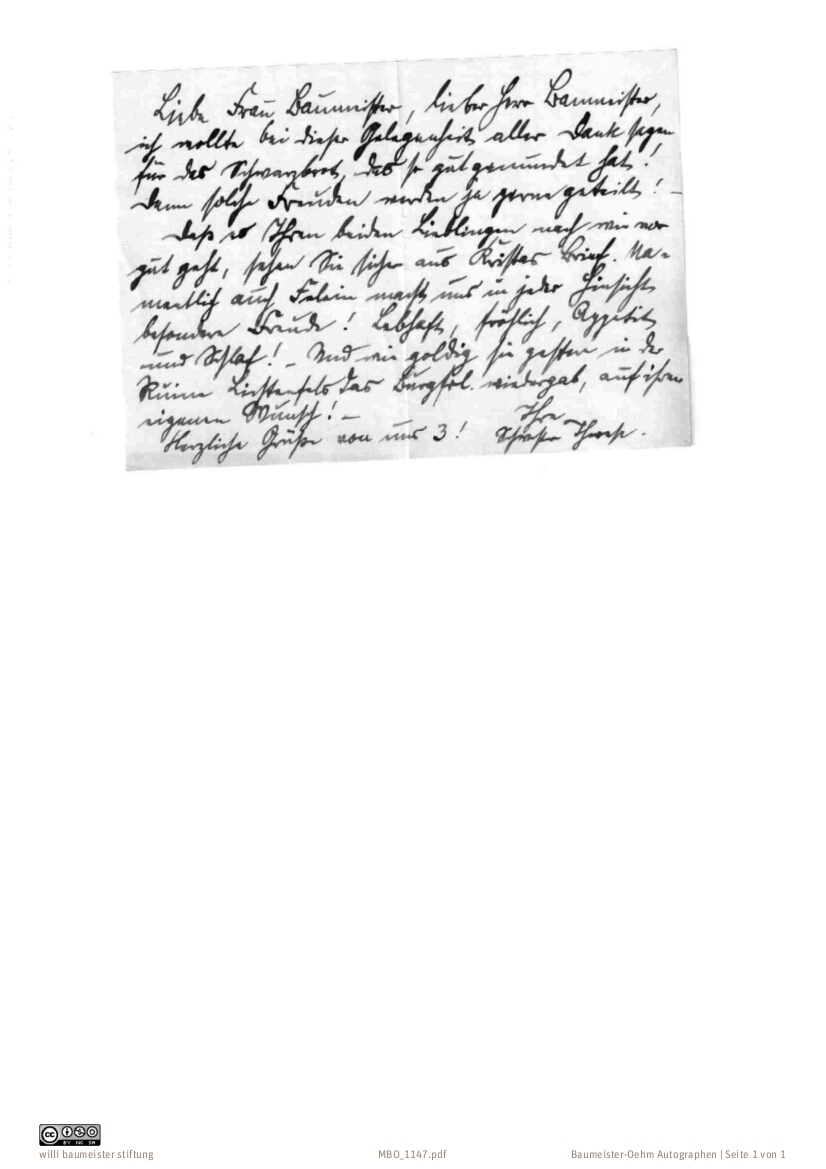 Liebe Frau Baumeister, lieber Herr Baumeister,
ich wollte bei dieser Gelegenheit allen Dank sagen
für das Schwarzbrot, das so gut gemundet hat!
Denn solche Freuden werden ja gerne geteilt! –
Daß es Ihren beiden Lieblingen nach wie vor
gut geht, sehen Sie sicher aus Kristas Brief. Na-
mentlich auch Felein macht uns in jeder Hinsicht
besondere Freude! Lebhaft, fröhlich, Appetit
und Schlaf! – Und wie goldig sie gestern in der
Ruine Lichtenfels das Burgfrl. wiedergab, auf ihren
eigenen Wunsch! –
Herzliche Grüße von uns 3! Ihre
Schwester Therese.
CC BY NC SA
willi baumeister stiftung
MBO_1147.pdf
Baumeister-Oehm Autographen | Seite 1 von 1